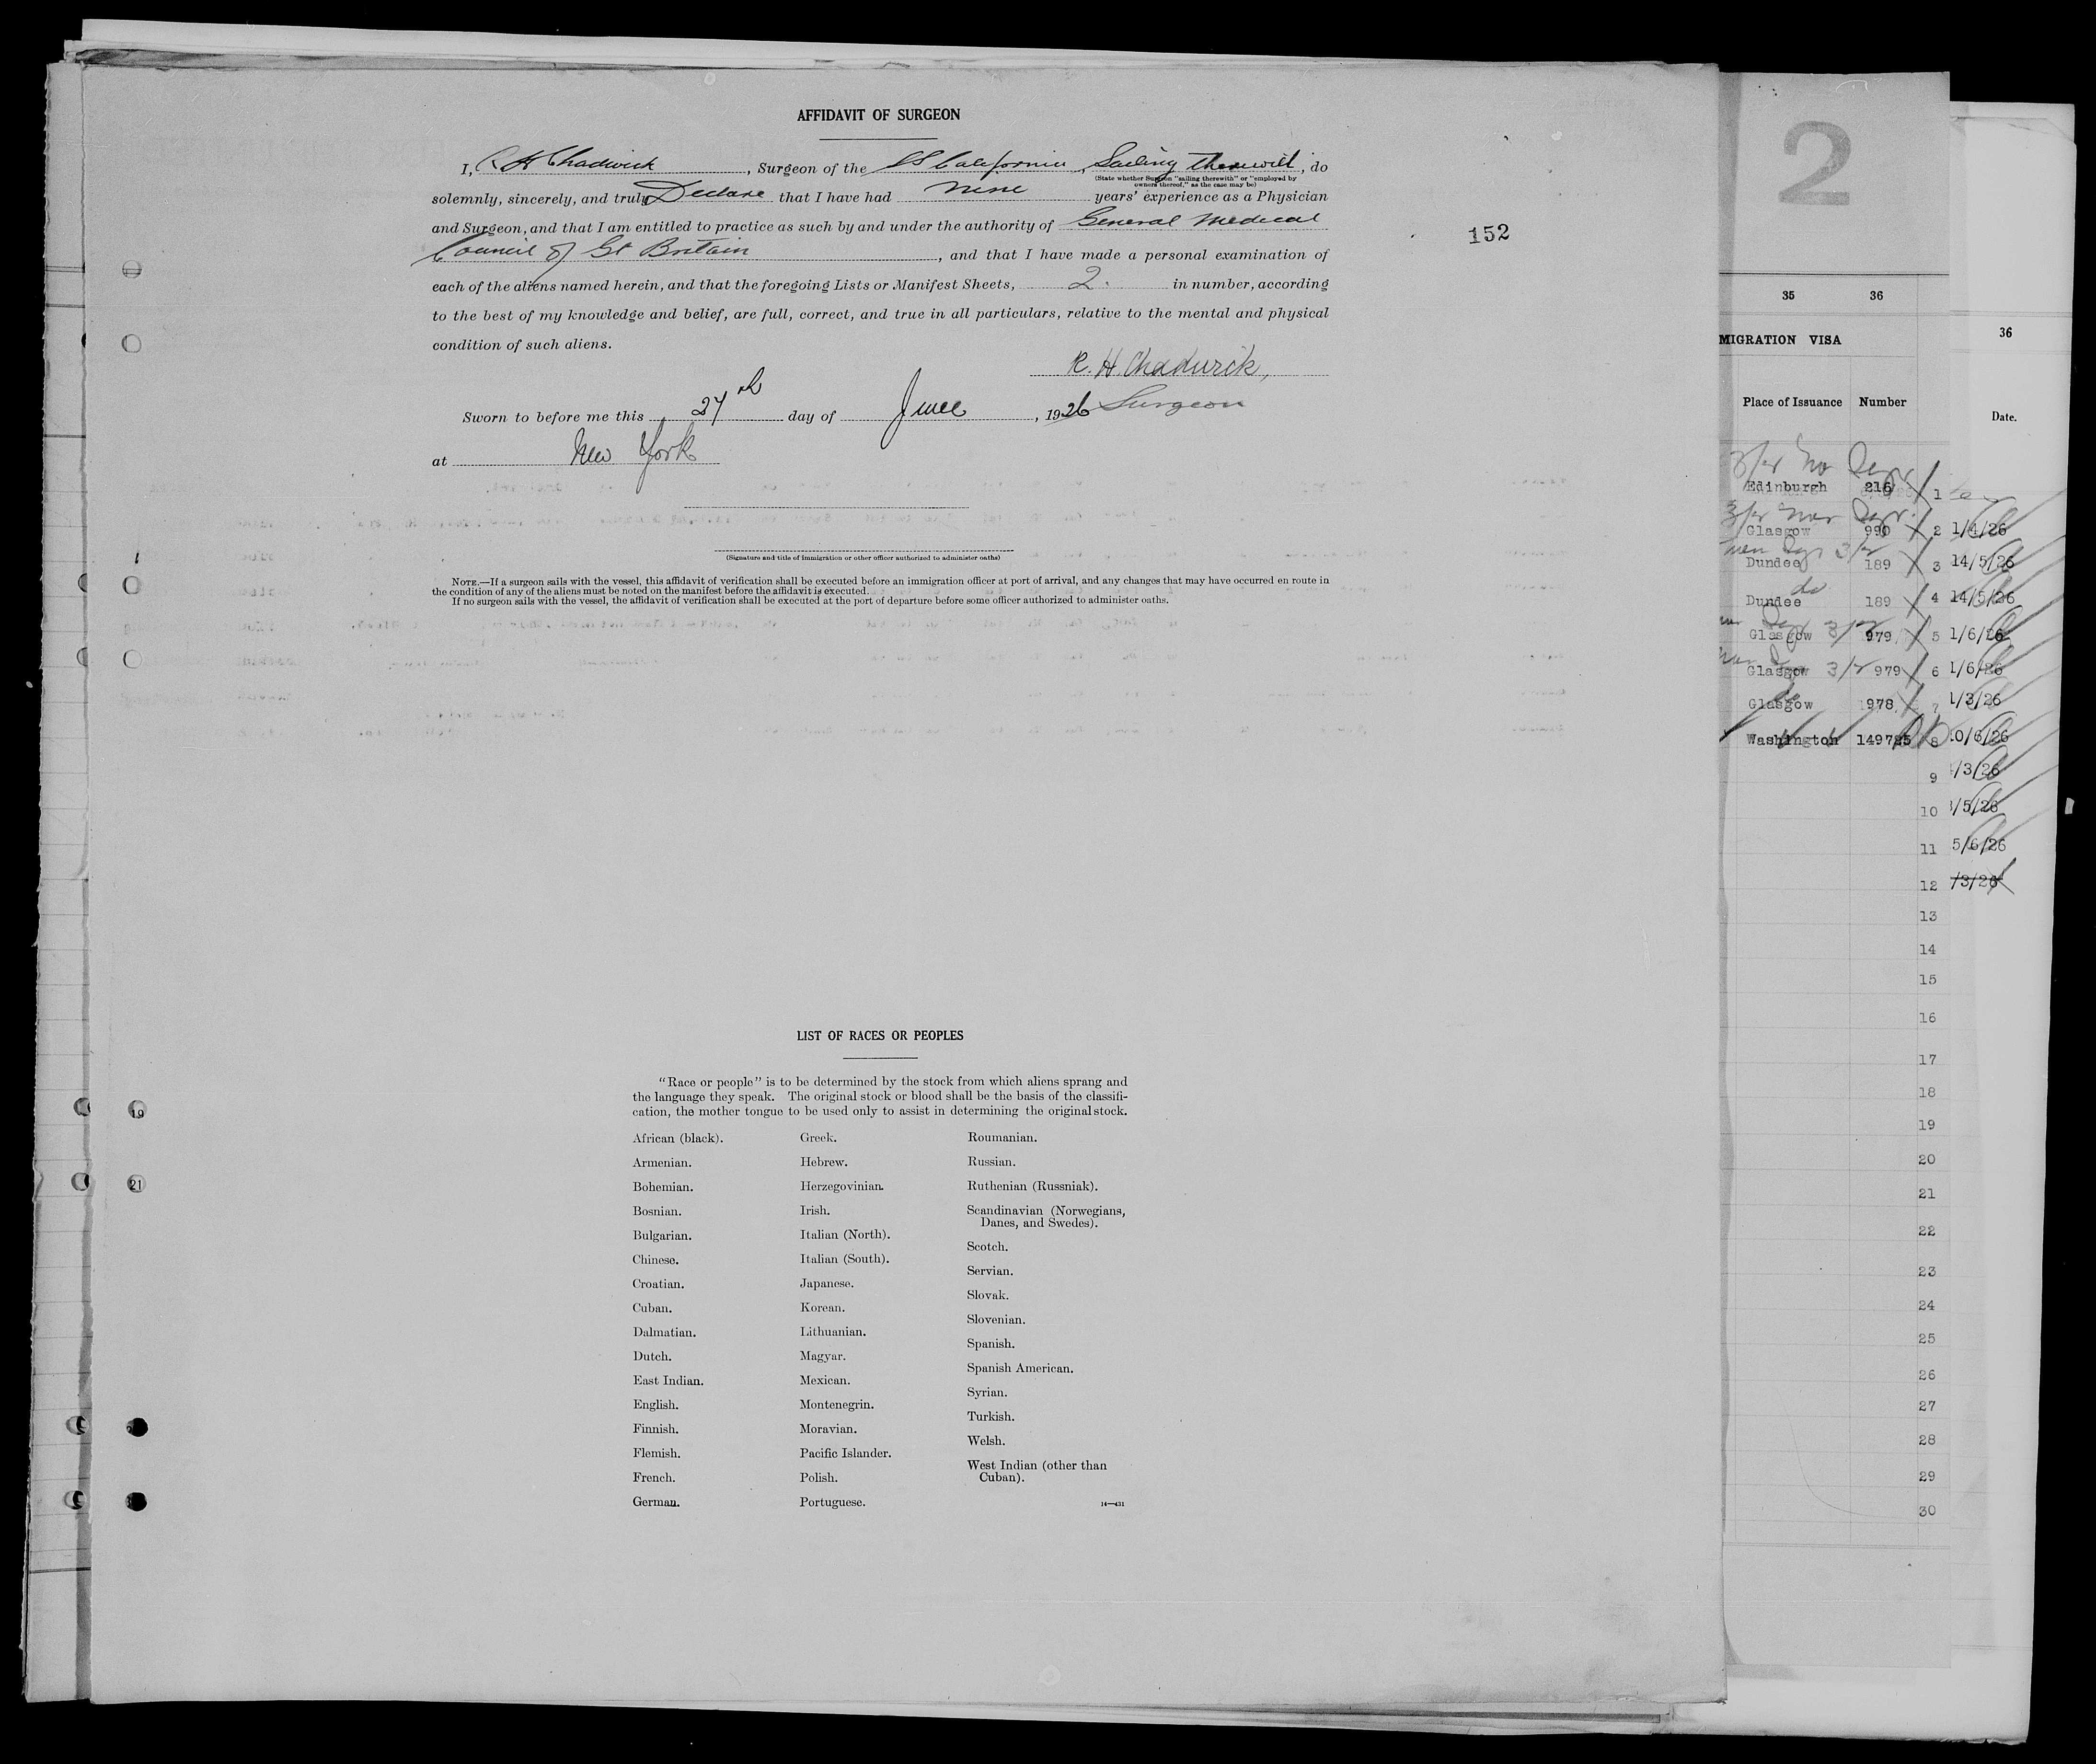 AFFIDAVIT OF SURGEON
I, R H Chadwick, Surgeon of the SS California, Sailing therewith, do
(State whether Surgeon "sailing therewith" or "employed by
owners thereof," as the case may be)
solemnly, sincerely, and truly Declare that I have had nine years' experience as a Physician
and Surgeon, and that I am entitled to practice as such by and under the authority of General Medical
Council of Gt Britain, and that I have made a personal examination of
each of the aliens named herein, and that the foregoing Lists or Manifest Sheets, 2. in number, according
to the best of my knowledge and belief, are full, correct, and true in all particulars, relative to the mental and physical
condition of such aliens.
R. H. Chadwick,
Surgeon
Sworn to before me this 27th day of June, 1926
at New York
(Signature and title of immigration or other officer authorized to administer oaths)
NOTE.—If a surgeon sails with the vessel, this affidavit of verification shall be executed before an immigration officer at port of arrival, and any changes that may have occurred en route in
the condition of any of the aliens must be noted on the manifest before the affidavit is executed.
If no surgeon sails with the vessel, the affidavit of verification shall be executed at the port of departure before some officer authorized to administer oaths.
152
LIST OF RACES OR PEOPLES
"Race or people" is to be determined by the stock from which aliens sprang and
the language they speak. The original stock or blood shall be the basis of the classifi-
cation, the mother tongue to be used only to assist in determining the original stock.
African (black).
Armenian.
Bohemian.
Bosnian.
Bulgarian.
Chinese.
Croatian.
Cuban.
Dalmatian.
Dutch.
East Indian.
English.
Finnish.
Flemish.
French.
German.
Greek.
Hebrew.
Herzegovinian.
Irish.
Italian (North).
Italian (South).
Japanese.
Korean.
Lithuanian.
Magyar.
Mexican.
Montenegrin.
Moravian.
Pacific Islander.
Polish.
Portuguese.
Roumanian.
Russian.
Ruthenian (Russniak).
Scandinavian (Norwegians,
Danes, and Swedes).
Scotch.
Servian.
Slovak.
Slovenian.
Spanish.
Spanish American.
Syrian.
Turkish.
Welsh.
West Indian (other than
Cuban).
14—431
19
21
2
35 36
MIGRATION VISA
Place of Issuance Number
Edinburgh 216 1
Glasgow 990 2
Dundee 189 3
do
Dundee 189 4
Glasgow 979 5
Glasgow 979 6
Glasgow 978 7
Washington 149785 8
9
10
11
12
13
14
15
16
17
18
19
20
21
22
23
24
25
26
27
28
29
30
36
Date.
1/4/26
14/5/26
14/5/26
1/6/26
1/6/26
1/3/26
0/6/26
/3/26
/5/26
5/6/26
/3/26